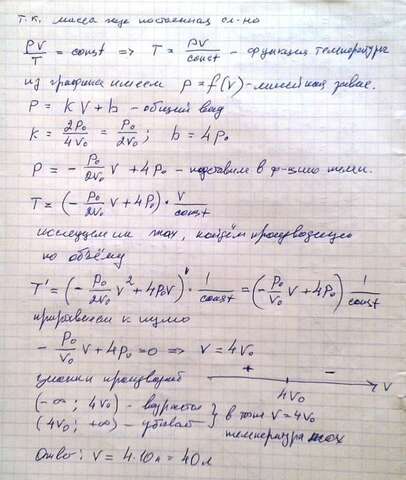 т.к. масса газа постоянная ск-но
PV/T = const => T = PV/const - функция температуры
из графика имеем p = f(V) - линейная завис.
P = kV + b - общий вид
k = 2P₀/4V₀ = P₀/2V₀; b = 4P₀
P = -P₀/2V₀ V + 4P₀ - подставим в ф-цию темп.
T = (-P₀/2V₀ V + 4P₀)·V/const
исследуем на max, найдём производную
по объёму
T' = (-P₀/2V₀ V² + 4P₀V)'·1/const = (-P₀/V₀ V + 4P₀) 1/const
приравняем к нулю
-P₀/V₀ V + 4P₀ = 0 => V = 4V₀
знаки производной + 4V₀ - V
(-∞; 4V₀) - возрастает } в точке V = 4V₀
(4V₀; +∞) - убывает температура max
Ответ: V = 4·10л = 40л